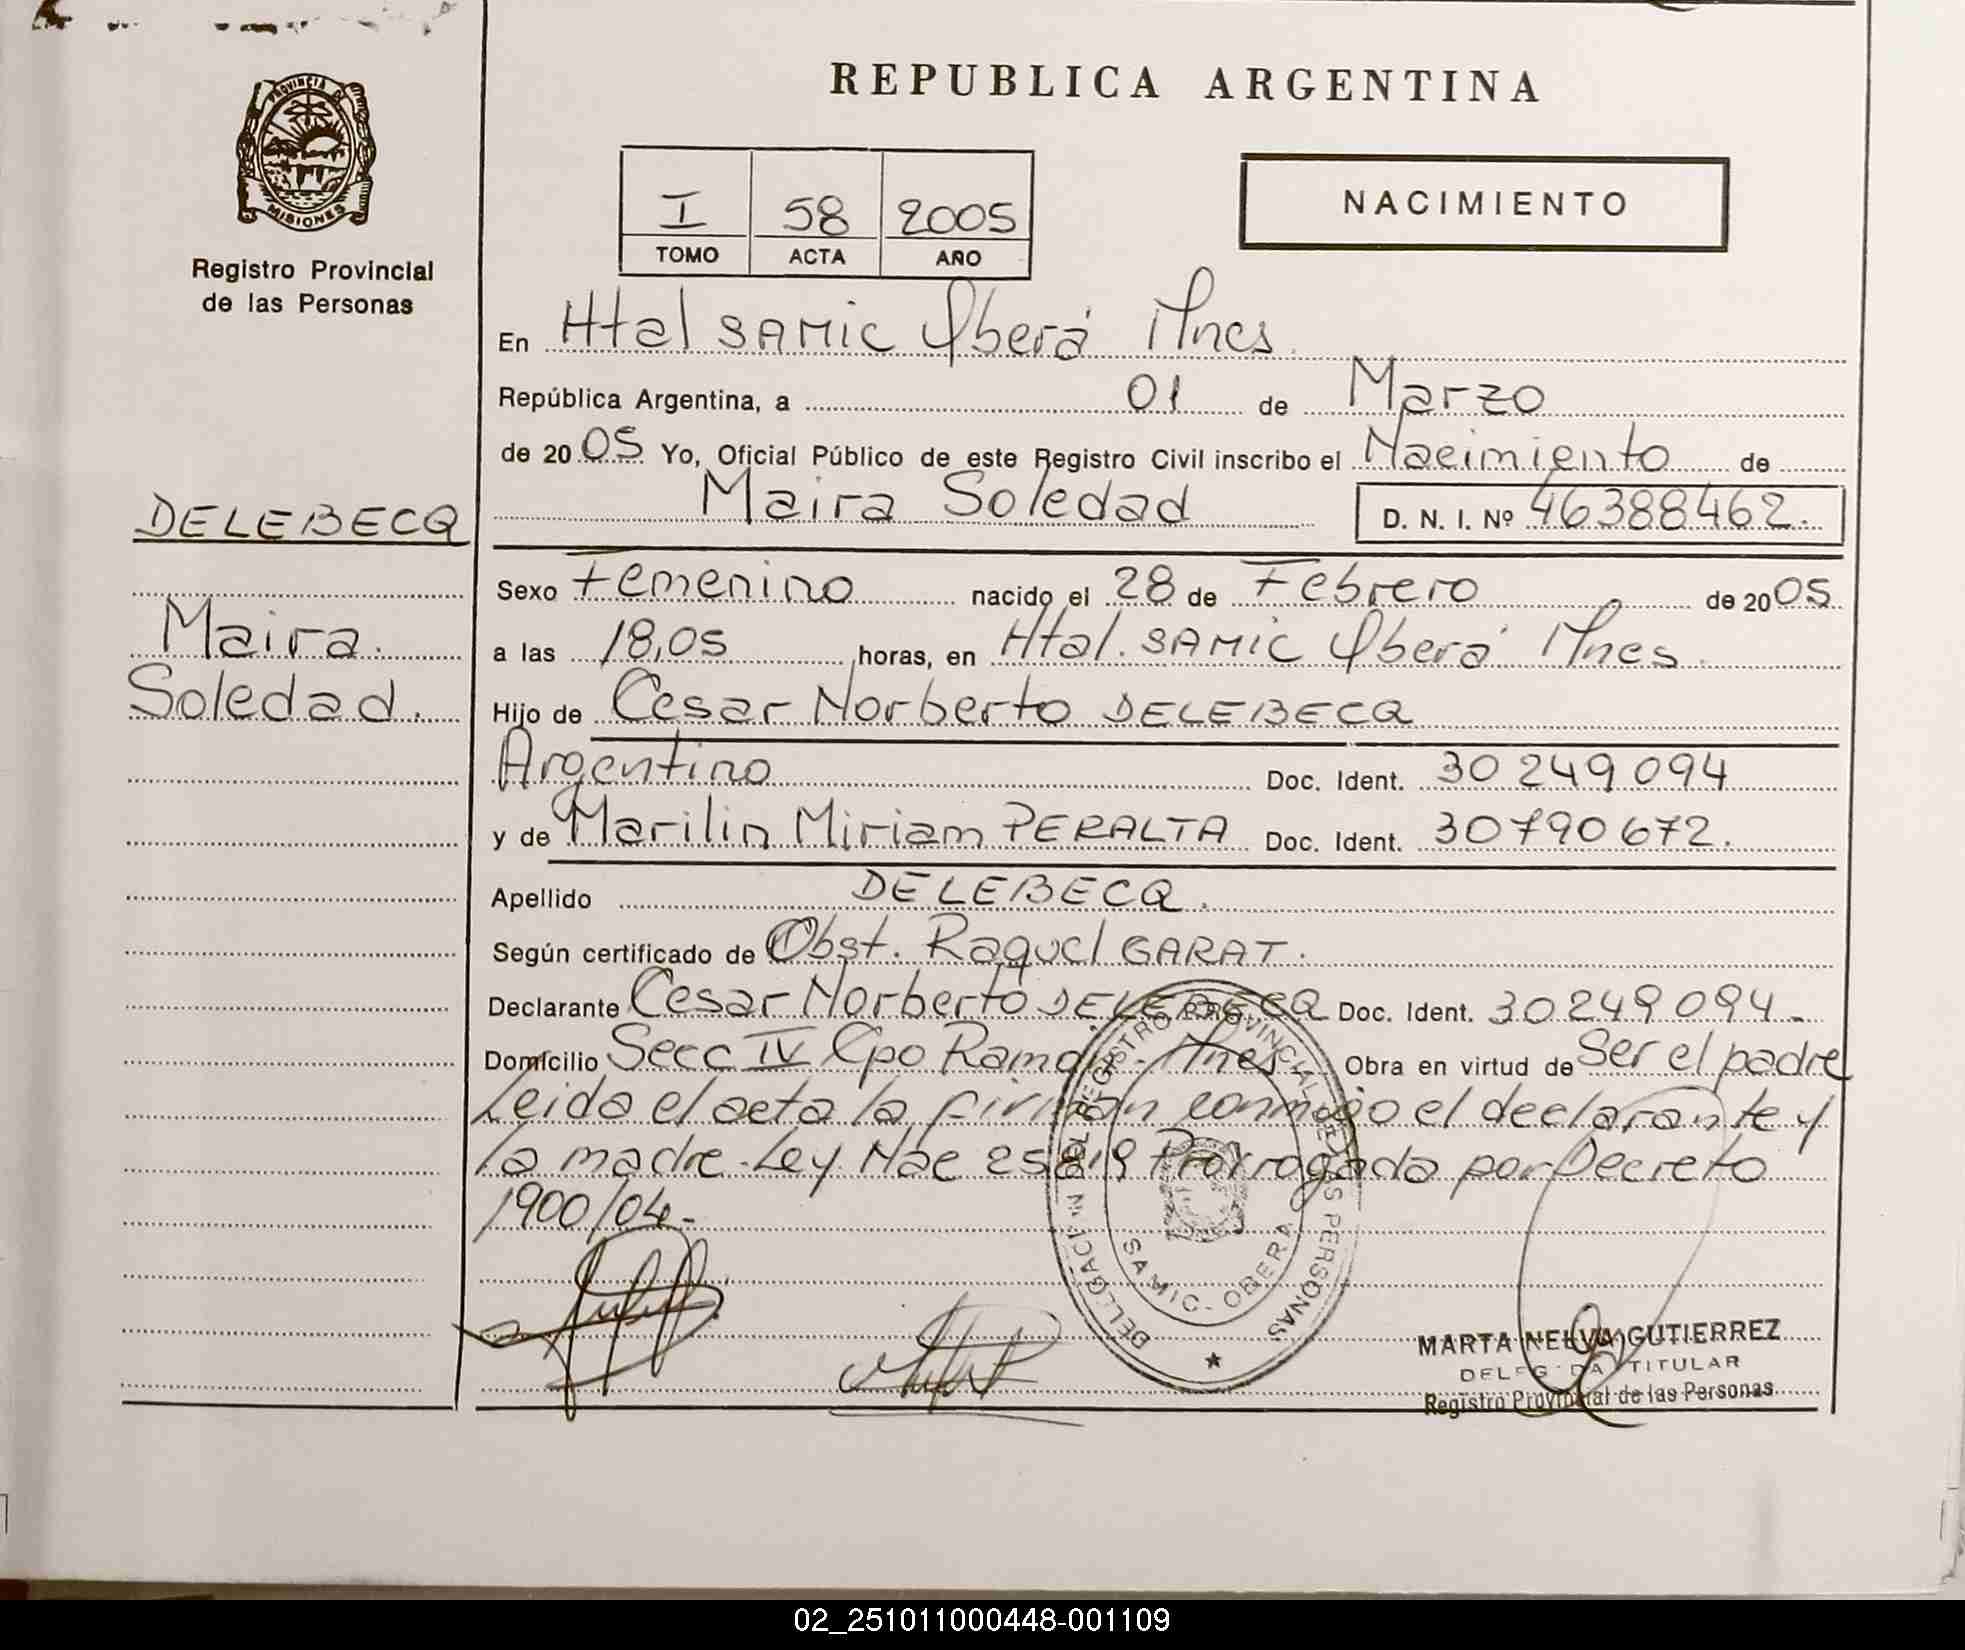 REPUBLICA ARGENTINA
PROVINCIA DE
MISIONES
Registro Provincial
de las Personas
I 58 2005
TOMO ACTA AÑO
NACIMIENTO
En Htal SAMIC Oberá Mnes.
República Argentina, a 01 de Marzo
de 2005 Yo, Oficial Público de este Registro Civil inscribo el Nacimiento de
Maira Soledad D. N. I. Nº 46388462.
DELEBECQ
Maira
Soledad.
Sexo Femenino nacido el 28 de Febrero de 2005
a las 18,05 horas, en Htal. SAMIC Oberá Mnes.
Hijo de Cesar Norberto DELEBECQ
Argentino Doc. Ident. 30249094
y de Marilin Miriam PERALTA Doc. Ident. 30790672.
Apellido DELEBECQ.
Según certificado de Obst. Raquel GARAT.
Declarante Cesar Norberto DELEBECQ Doc. Ident. 30249094-
Domicilio Secc IV Cpo Ramón - Mnes Obra en virtud de Ser el padre
Leida el acta la firman conmigo el declarante y
la madre. Ley Nac 25819 Prorrogada por Decreto
1900/04-
DELEGACION DEL REGISTRO PROVINCIAL DE LAS PERSONAS
SAMIC - OBERA
MARTA NELVA GUTIERREZ
DELEGADA TITULAR
Registro Provincial de las Personas
02_251011000448-001109